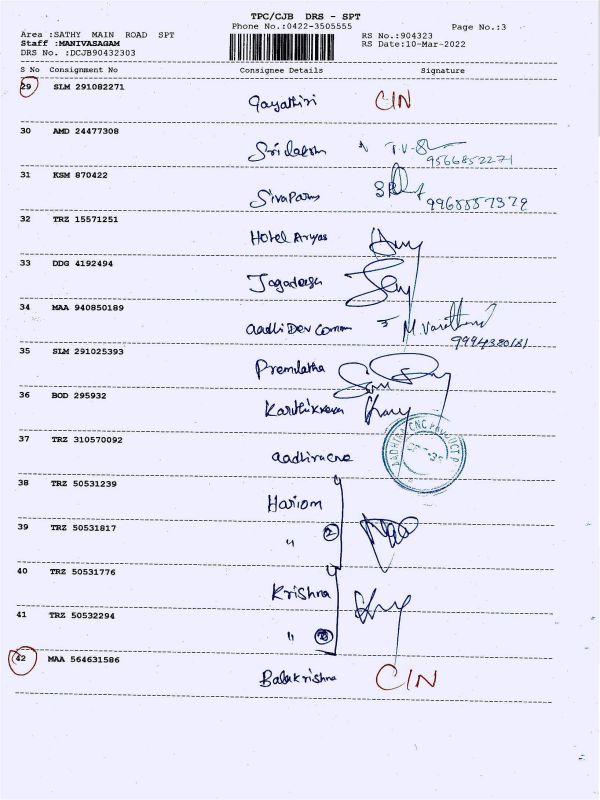 TPC/CJB DRS - SPT
Phone No.:0422-3505555
Page No.:3
Area :SATHY MAIN ROAD SPT
RS No.:904323
Staff :MANIVASAGAM
RS Date:10-Mar-2022
DRS No. :DCJB90432303
S No Consignment No Consignee Details Signature
29 SLM 291082271
Gayathiri CIN
30 AMD 24477308
9566852271
31 KSM 870422
32 TRZ 15571251
Hotel Aryas
33 DDG 4192494
Jagadeesh
34 MAA 940850189
aadhi Dev Comm
35 SLM 291025393
Premlatha
36 BOD 295932
37 TRZ 310570092
38 TRZ 50531239
Hariom
39 TRZ 50531817
" 2
40 TRZ 50531776
Krishna
41 TRZ 50532294
"
42 MAA 564631586
Balakrishna CIN